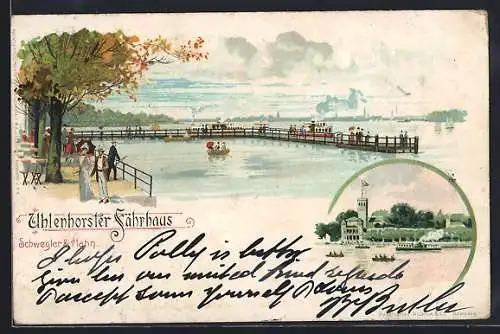 Uhlenhorster Fährhaus
Schwegler & Hahn.
I hope Polly is better
Give her our united kind regards
& accept same yourself Yours
W Butler